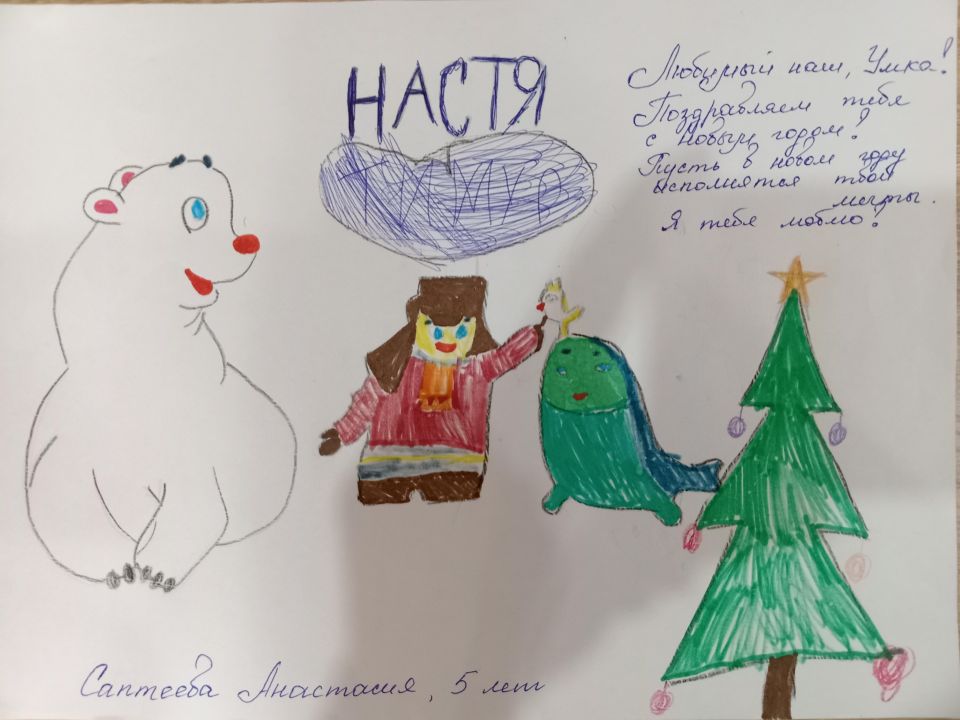 НАСТЯ
Любимый наш, Умка!
Поздравляем тебя
с Новым годом!
Пусть в новом году
исполнятся твои
мечты.
Я тебя люблю!
Саптеева Анастасия, 5 лет